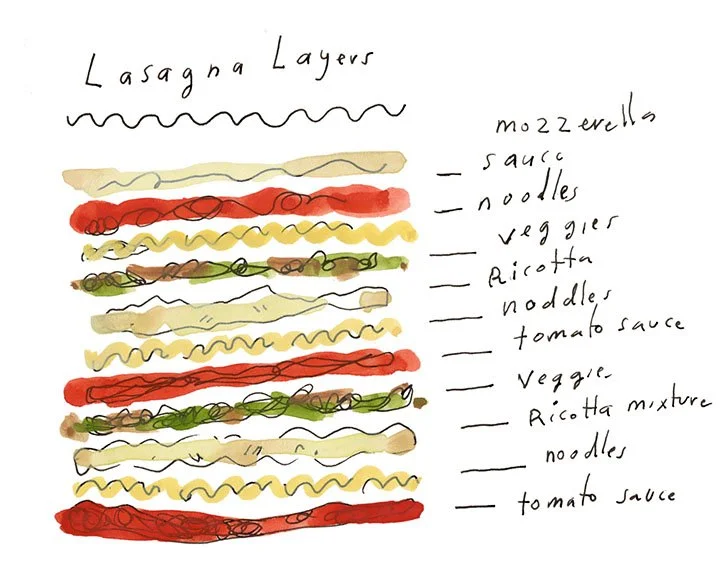 Lasagna Layers
mozzerella
sauce
noodles
veggies
Ricotta
noddles
tomato sauce
veggie
Ricotta mixture
noodles
tomato sauce